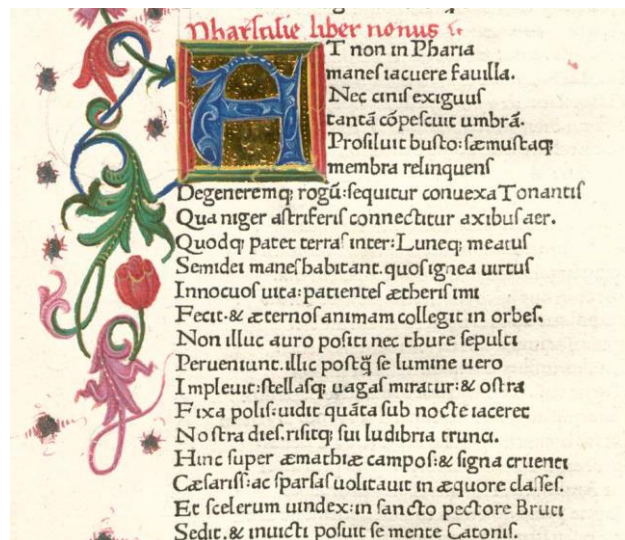 Pharsalie liber nonus
AT non in Pharia
maneſ iacuere fauilla.
Nec ciniſ exiguuſ
tantã cõpeſcuit umbrã.
Proſiluit buſto: ſæmuſtaqꝫ
membra relinquenſ
Degeneremqꝫ rogũ: ſequitur conuexa Tonantiſ
Qua niger aſtriferiſ connectitur axibuſ aer.
Quodqꝫ patet terraſ inter: Luneqꝫ meatuſ
Semidei maneſ habitant. quoſ ignea uirtuſ
Innocuoſ uita: patienteſ ætheriſ imi
Fecit. & æternoſ animam collegit in orbeſ.
Non illuc auro poſiti nec thure ſepulti
Perueniunt. illic poſtq̃ ſe lumine uero
Impleuit: ſtellaſqꝫ uagaſ miratur: & oſtra
Fixa poliſ: uidit quãta ſub nocte iaceret
Noſtra dieſ. riſitqꝫ ſui ludibria trunci.
Hinc ſuper æmathiæ campoſ: & ſigna cruenti
Cæſariſ: ac ſparſaſ uolitauit in æquore claſſeſ.
Et ſcelerum uindex: in ſancto pectore Bruti
Sedit. & inuicti poſuit ſe mente Catoniſ.